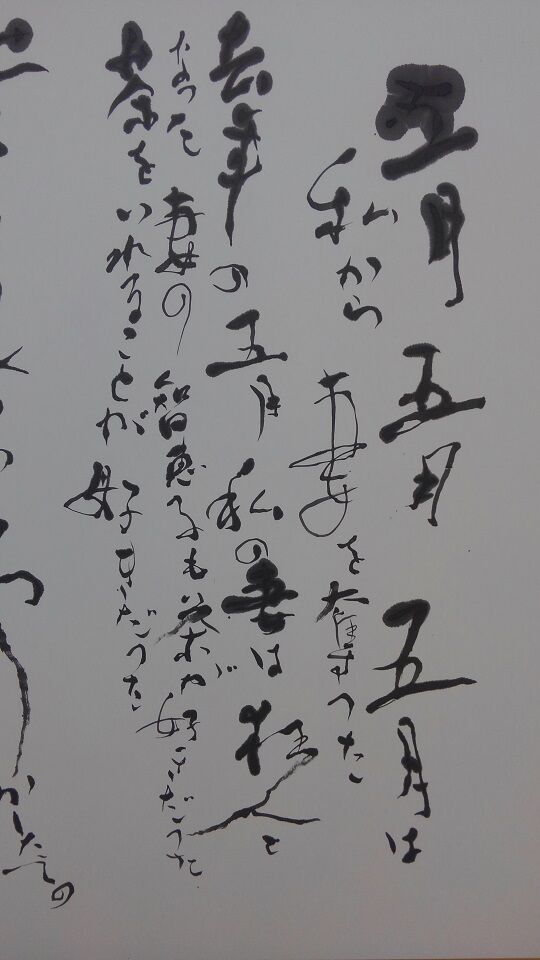 五月 五月 五月は
私から 妻を奪つた
去年の五月 私の妻は狂人と
なつた 妻の智恵子も茶が好きだつた
茶をいれることが 好きだつた